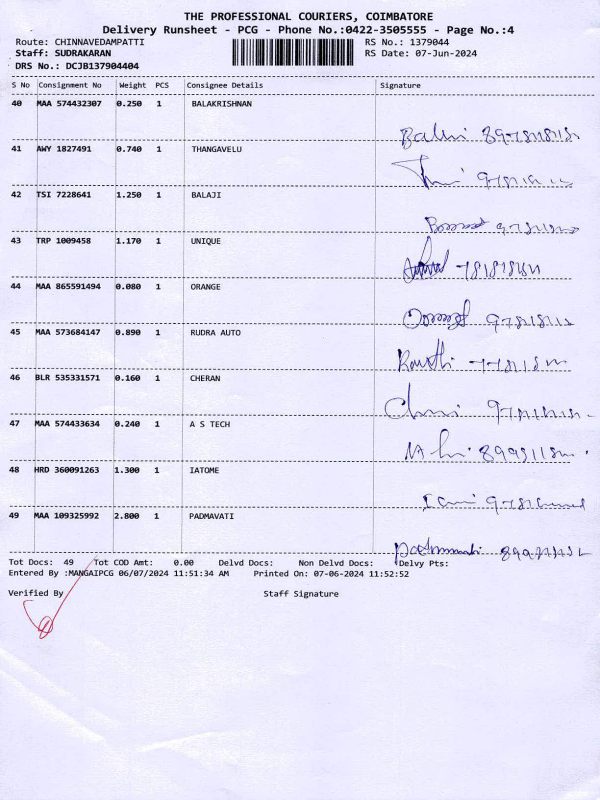 THE PROFESSIONAL COURIERS, COIMBATORE
Delivery Runsheet - PCG - Phone No.:0422-3505555 - Page No.:4
Route: CHINNAVEDAMPATTI RS No.: 1379044
Staff: SUDRAKARAN RS Date: 07-Jun-2024
DRS No.: DCJB137904404
S No Consignment No Weight PCS Consignee Details Signature
40 MAA 574432307 0.250 1 BALAKRISHNAN
41 AWY 1827491 0.740 1 THANGAVELU
42 TSI 7228641 1.250 1 BALAJI
43 TRP 1009458 1.170 1 UNIQUE
44 MAA 865591494 0.080 1 ORANGE
45 MAA 573684147 0.890 1 RUDRA AUTO
46 BLR 535331571 0.160 1 CHERAN
47 MAA 574433634 0.240 1 A S TECH
48 HRD 360091263 1.300 1 IATOME
49 MAA 109325992 2.800 1 PADMAVATI
Tot Docs: 49 Tot COD Amt: 0.00 Delvd Docs: Non Delvd Docs: Delvy Pts:
Entered By :MANGAIPCG 06/07/2024 11:51:34 AM Printed On: 07-06-2024 11:52:52
Verified By Staff Signature